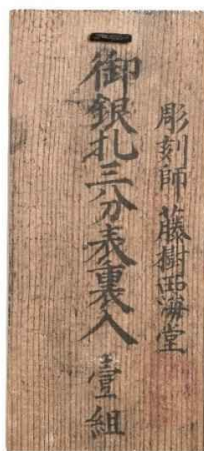 彫刻師 藤樹西海堂
御銀札三分表裏入 壹組